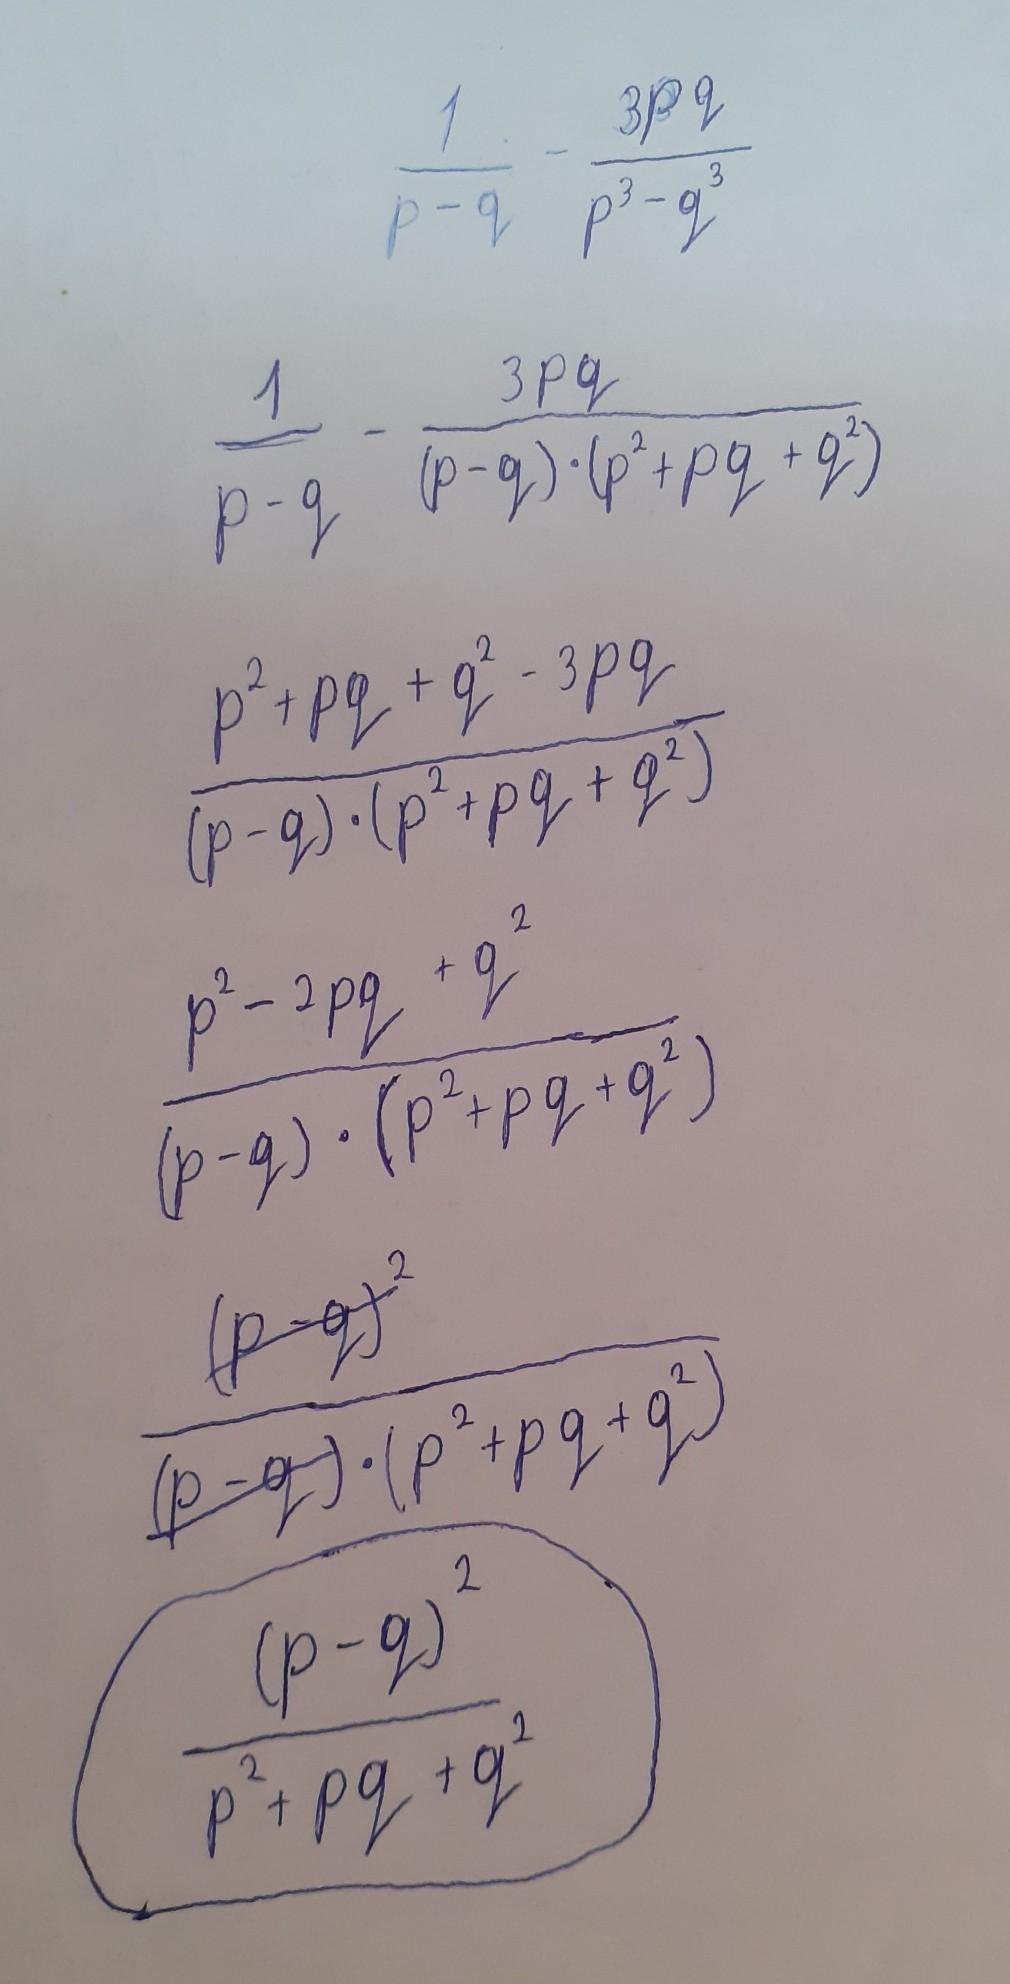 1/(p-q) - 3pq/(p³-q³)
1/(p-q) - 3pq/((p-q)·(p²+pq+q²))
(p²+pq+q²-3pq)/((p-q)·(p²+pq+q²))
(p²-2pq+q²)/((p-q)·(p²+pq+q²))
(p-q)²/((p-q)·(p²+pq+q²))
(p-q)²/(p²+pq+q²)